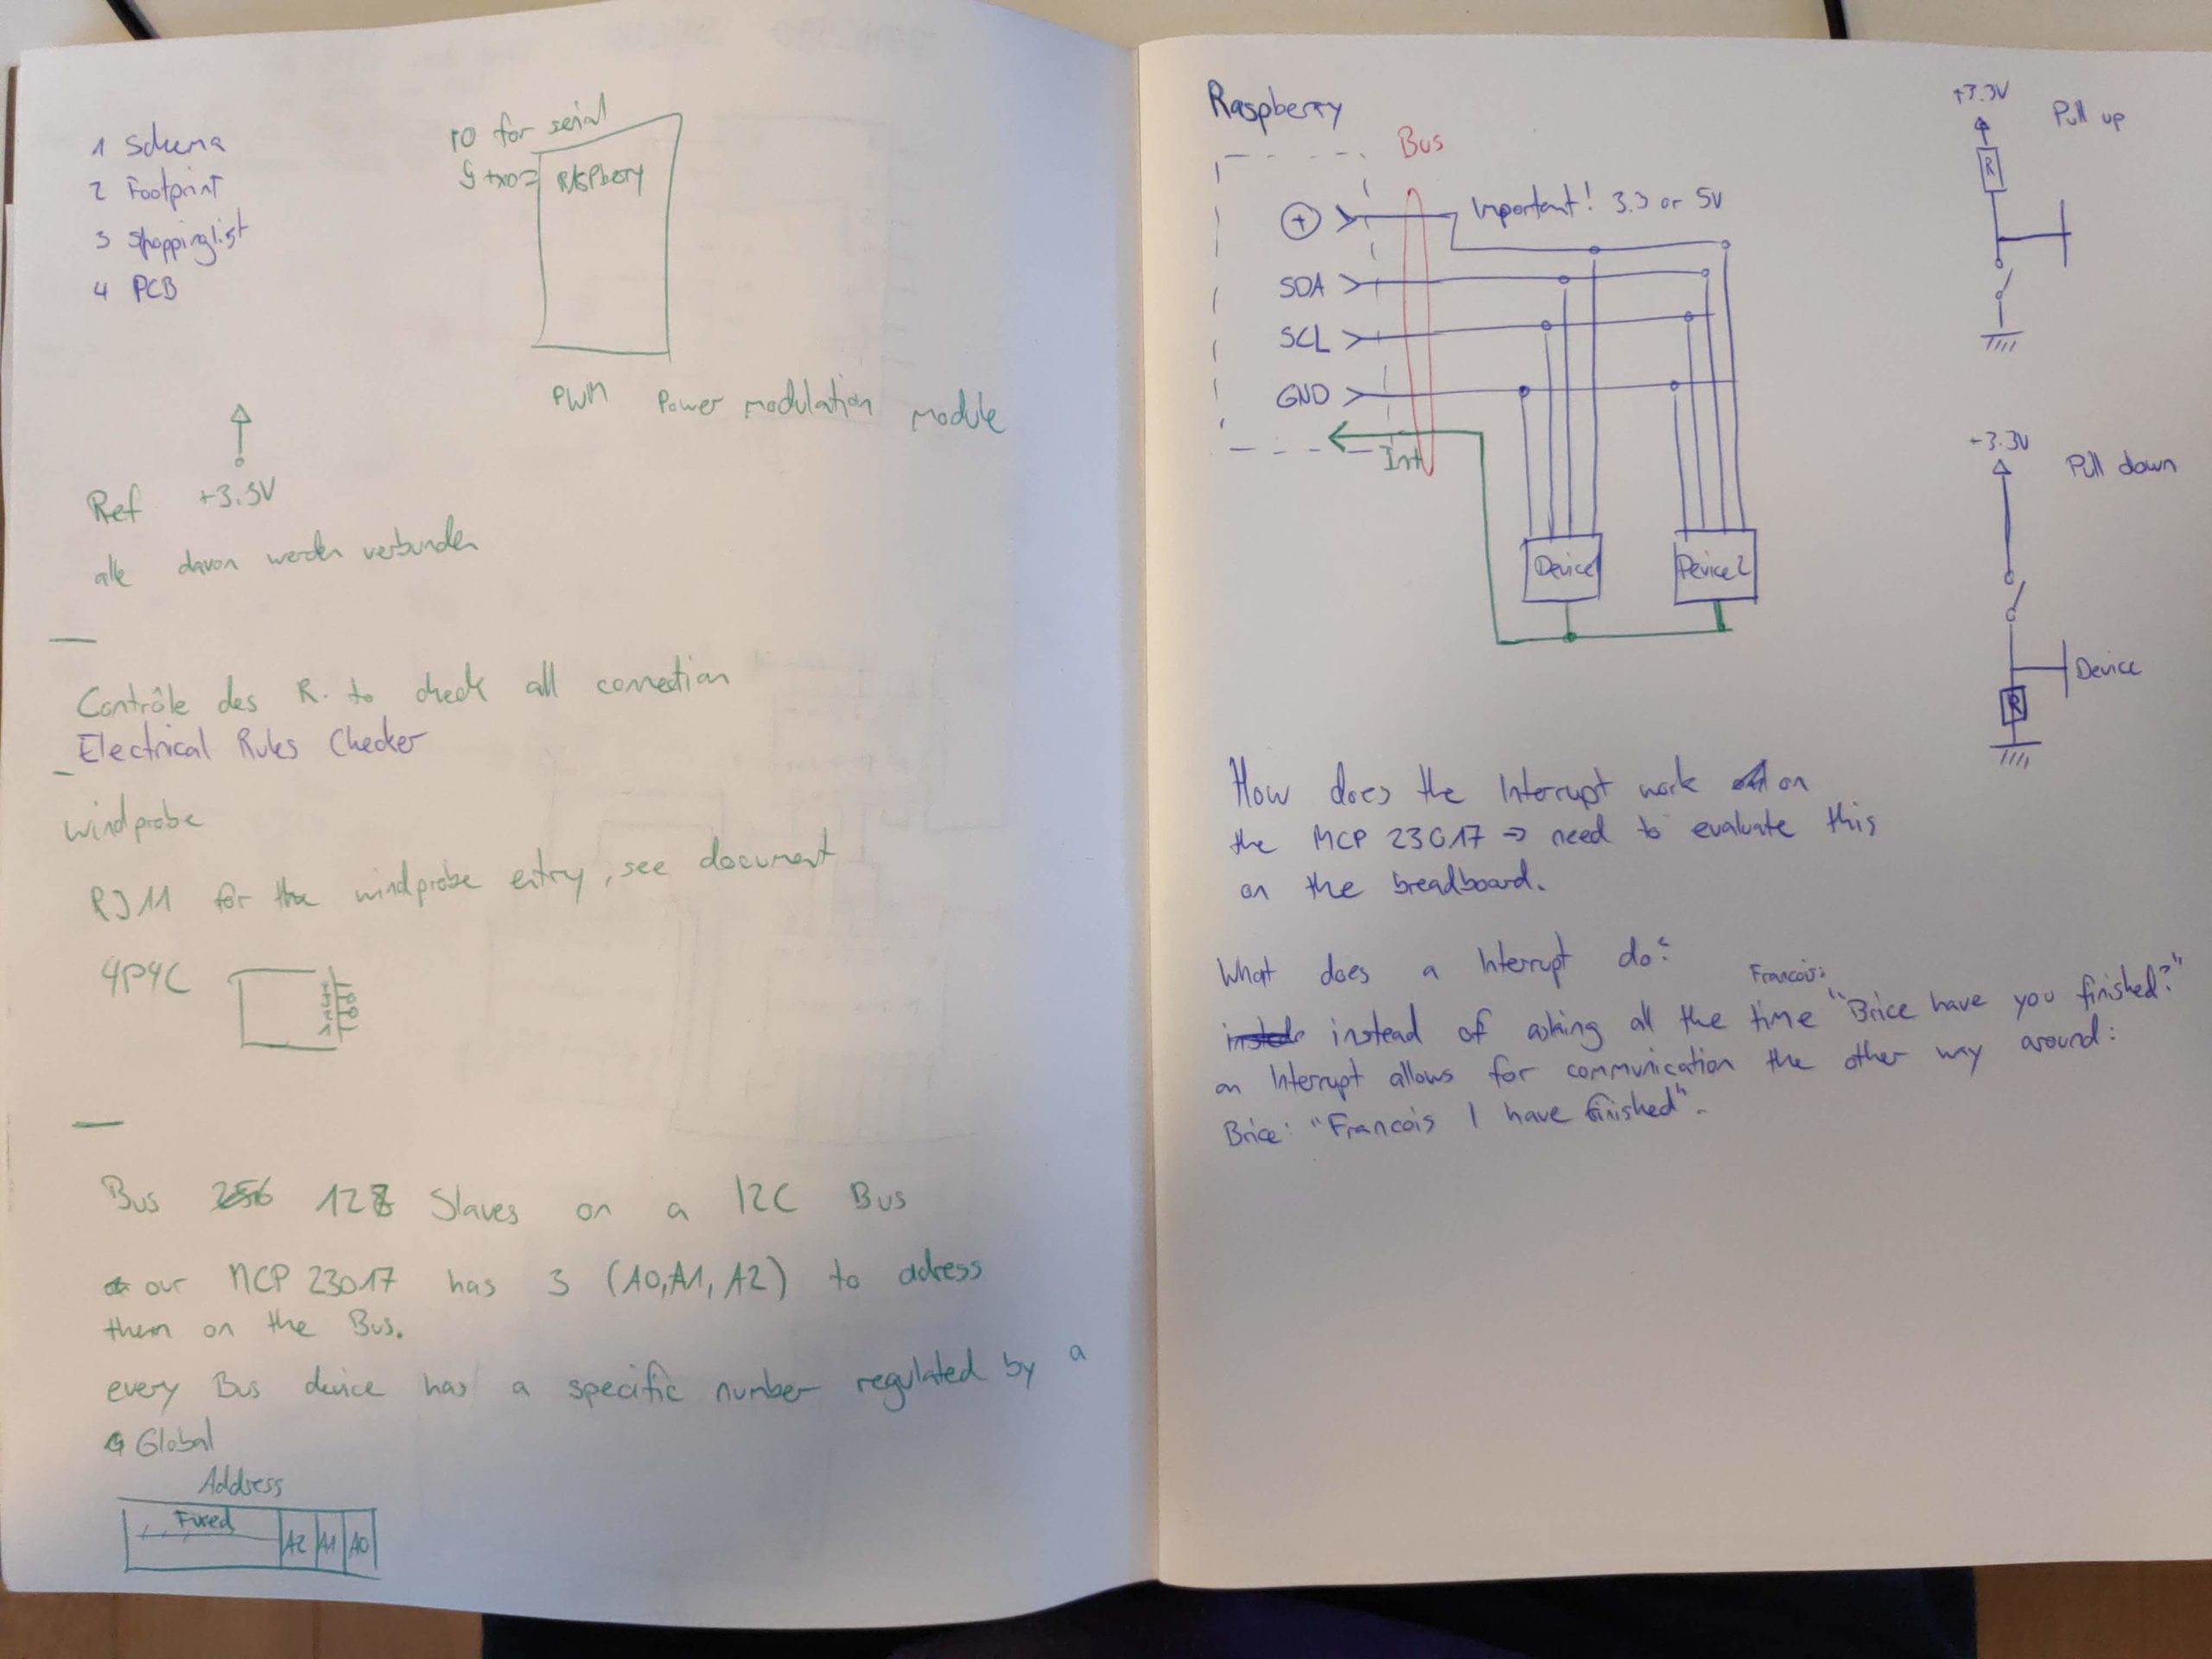 1 Schema
2 Footprint
3 Shoppinglist
4 PCB
10 for serial
RASPberry
PWM Power modulation module
Ref +3.3V
alle davon werden verbunden
Contrôle des R. to check all connection
Electrical Rules Checker
windprobe
RJ11 for the windprobe entry, see document
4P4C
Bus 128 Slaves on a I2C Bus
our MCP 23017 has 3 (A0, A1, A2) to adress
them on the Bus.
every Bus device has a specific number regulated by a
Global
Address
Fixed A2 A1 A0
Raspberry
Bus
+ Important! 3.3 or 5V
SDA
SCL
GND
Int
Device1 Device2
+3.3V Pull up
R
+3.3V Pull down
Device
R
How does the Interrupt work on
the MCP 23017 => need to evaluate this
on the breadboard.
What does a Interrupt do?
Francois:
instead of asking all the time "Brice have you finished?"
an Interrupt allows for communication the other way around:
Brice: "Francois I have finished".